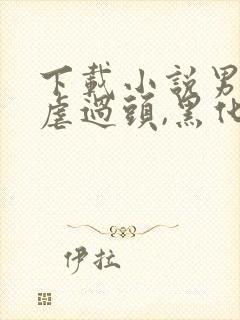 下載小說男
虐過頭,黑化
伊拉